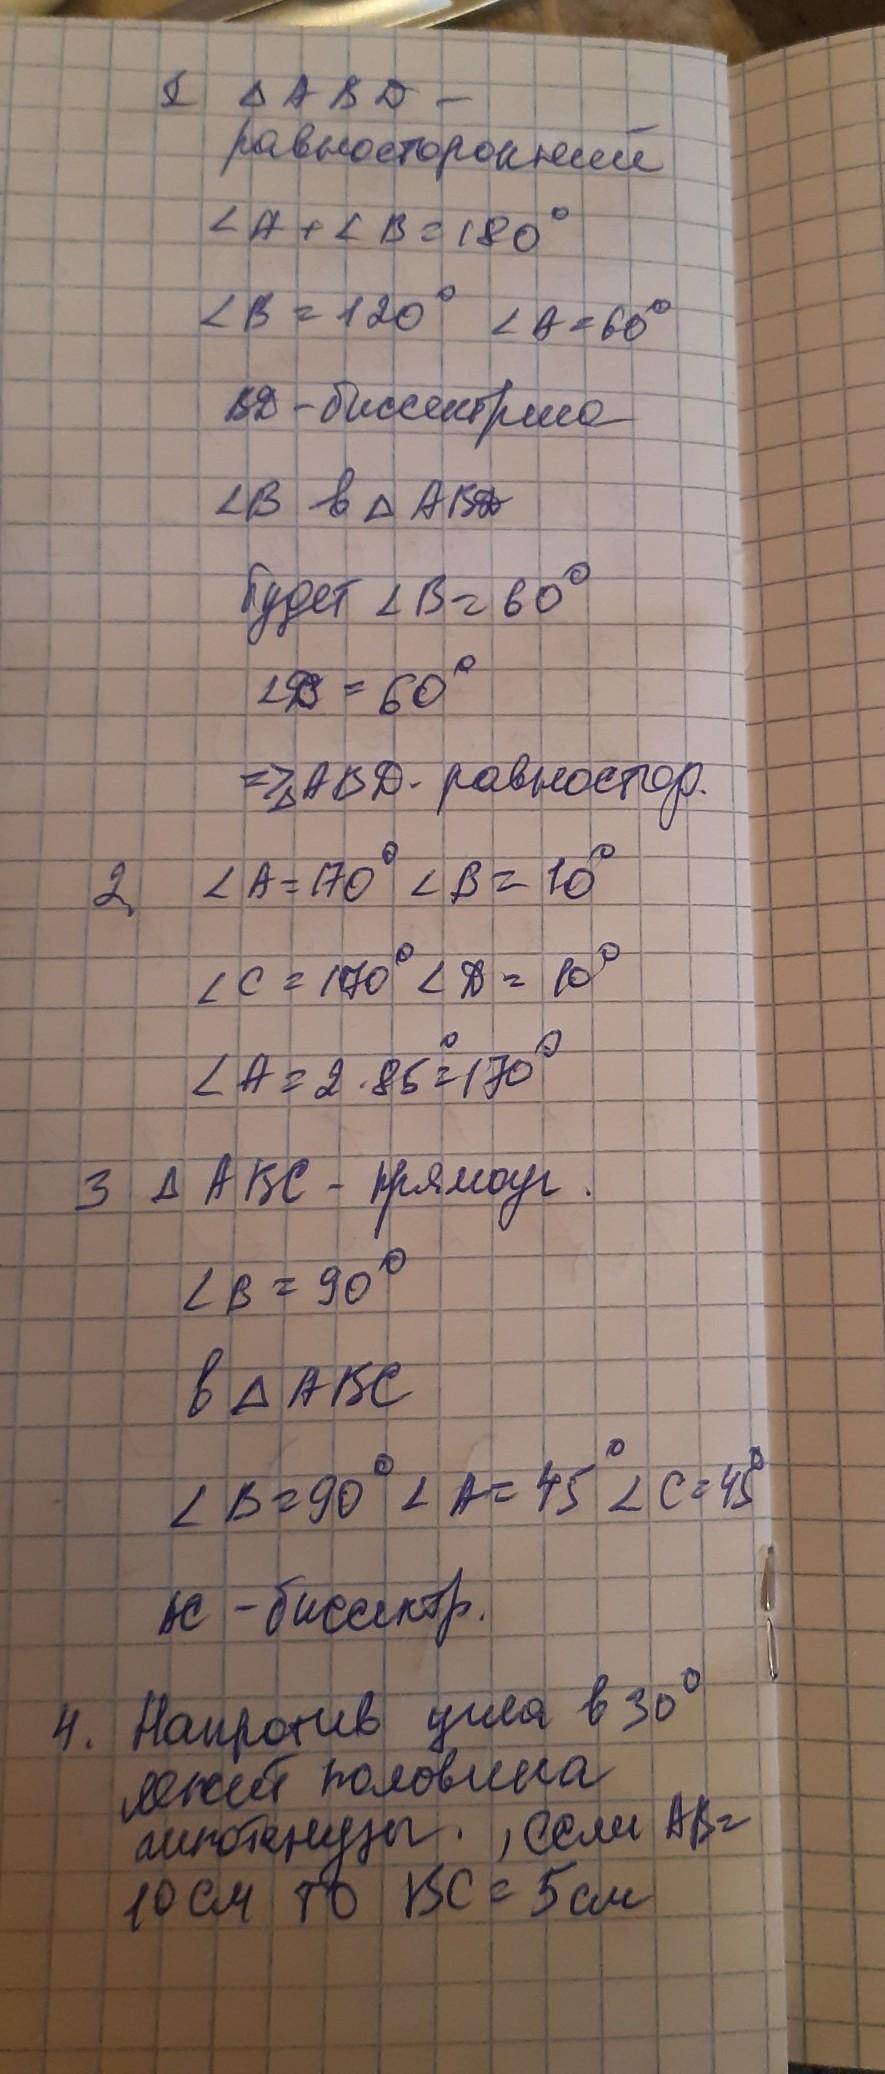 1 △ ABD –
равносторонний
∠A + ∠B = 180°
∠B = 120° ∠A = 60°
BD – биссектриса
∠B в △ ABD
будет ∠B = 60°
∠D = 60°
=> △ ABD - равностор.
2, ∠A = 170° ∠B = 10°
∠C = 170° ∠D = 10°
∠A = 2 · 85° = 170°
3 △ ABC – прямоуг.
∠B = 90°
в △ ABC
∠B = 90° ∠A = 45° ∠C = 45°
AC – биссектр.
4. Напротив угла в 30°
лежит половина
гипотенузы. , если AB =
10 см то BC = 5 см